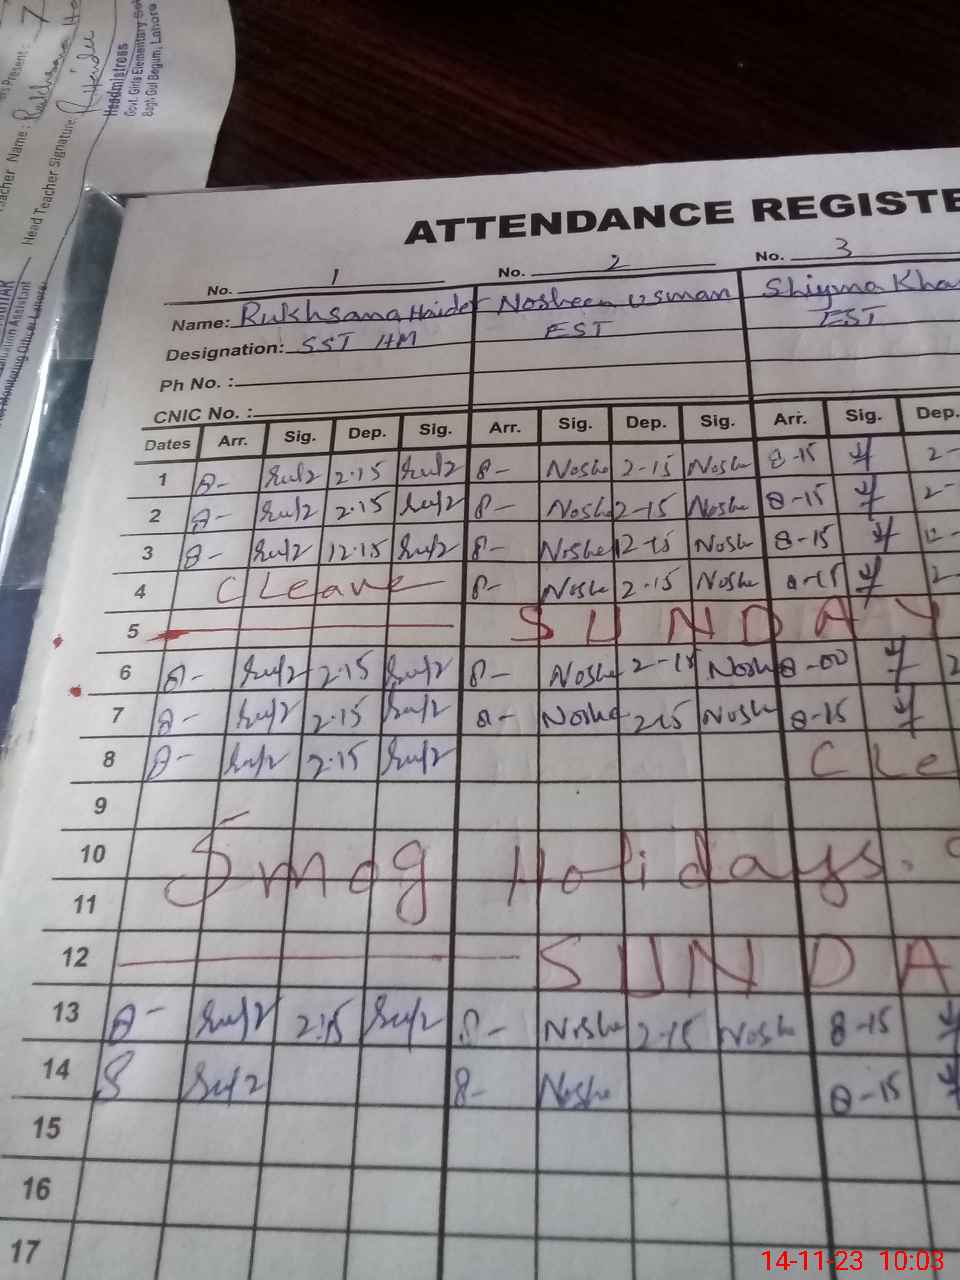 Presents: 7
Teacher Name: Rukhsana
Head Teacher Signature: R. Haider
Headmistress
Govt. Girls Elementary
Bagh Gul Begum, Lahore
Monitoring Officer Lahore
ATTENDANCE REGISTE
No. 1 No. 2 No. 3
Name: Rukhsana Haider Nosheen Usman Shiyma Kha
Designation: SST HM EST EST
Ph No. :
CNIC No. :
Dates Arr. Sig. Dep. Sig. Arr. Sig. Dep. Sig. Arr. Sig. Dep.
1 8- 2.15 8- Noshe 2-15 Noshe 8-15 2-
2 8- 2.15 8- Noshe 2-15 Noshe 8-15 2-
3 8- 12.15 8- Noshe 12-15 Noshe 8-15 12-
4 C Leave 8- Noshe 2.15 Noshe 8-15 2-
5 SUNDAY
6 8- 2.15 8- Noshe 2-15 Noshe 8-00 2
7 8- 2.15 8- Noshe 2-15 Noshe 8-15
8 8- 2.15 C Le
9
10 Smog Holidays.
11
12 SUNDA
13 8- 2.15 8- Noshe 2-15 Noshe 8-15
14 8 8- Noshe 8-15
15
16
17
14-11-23 10:03